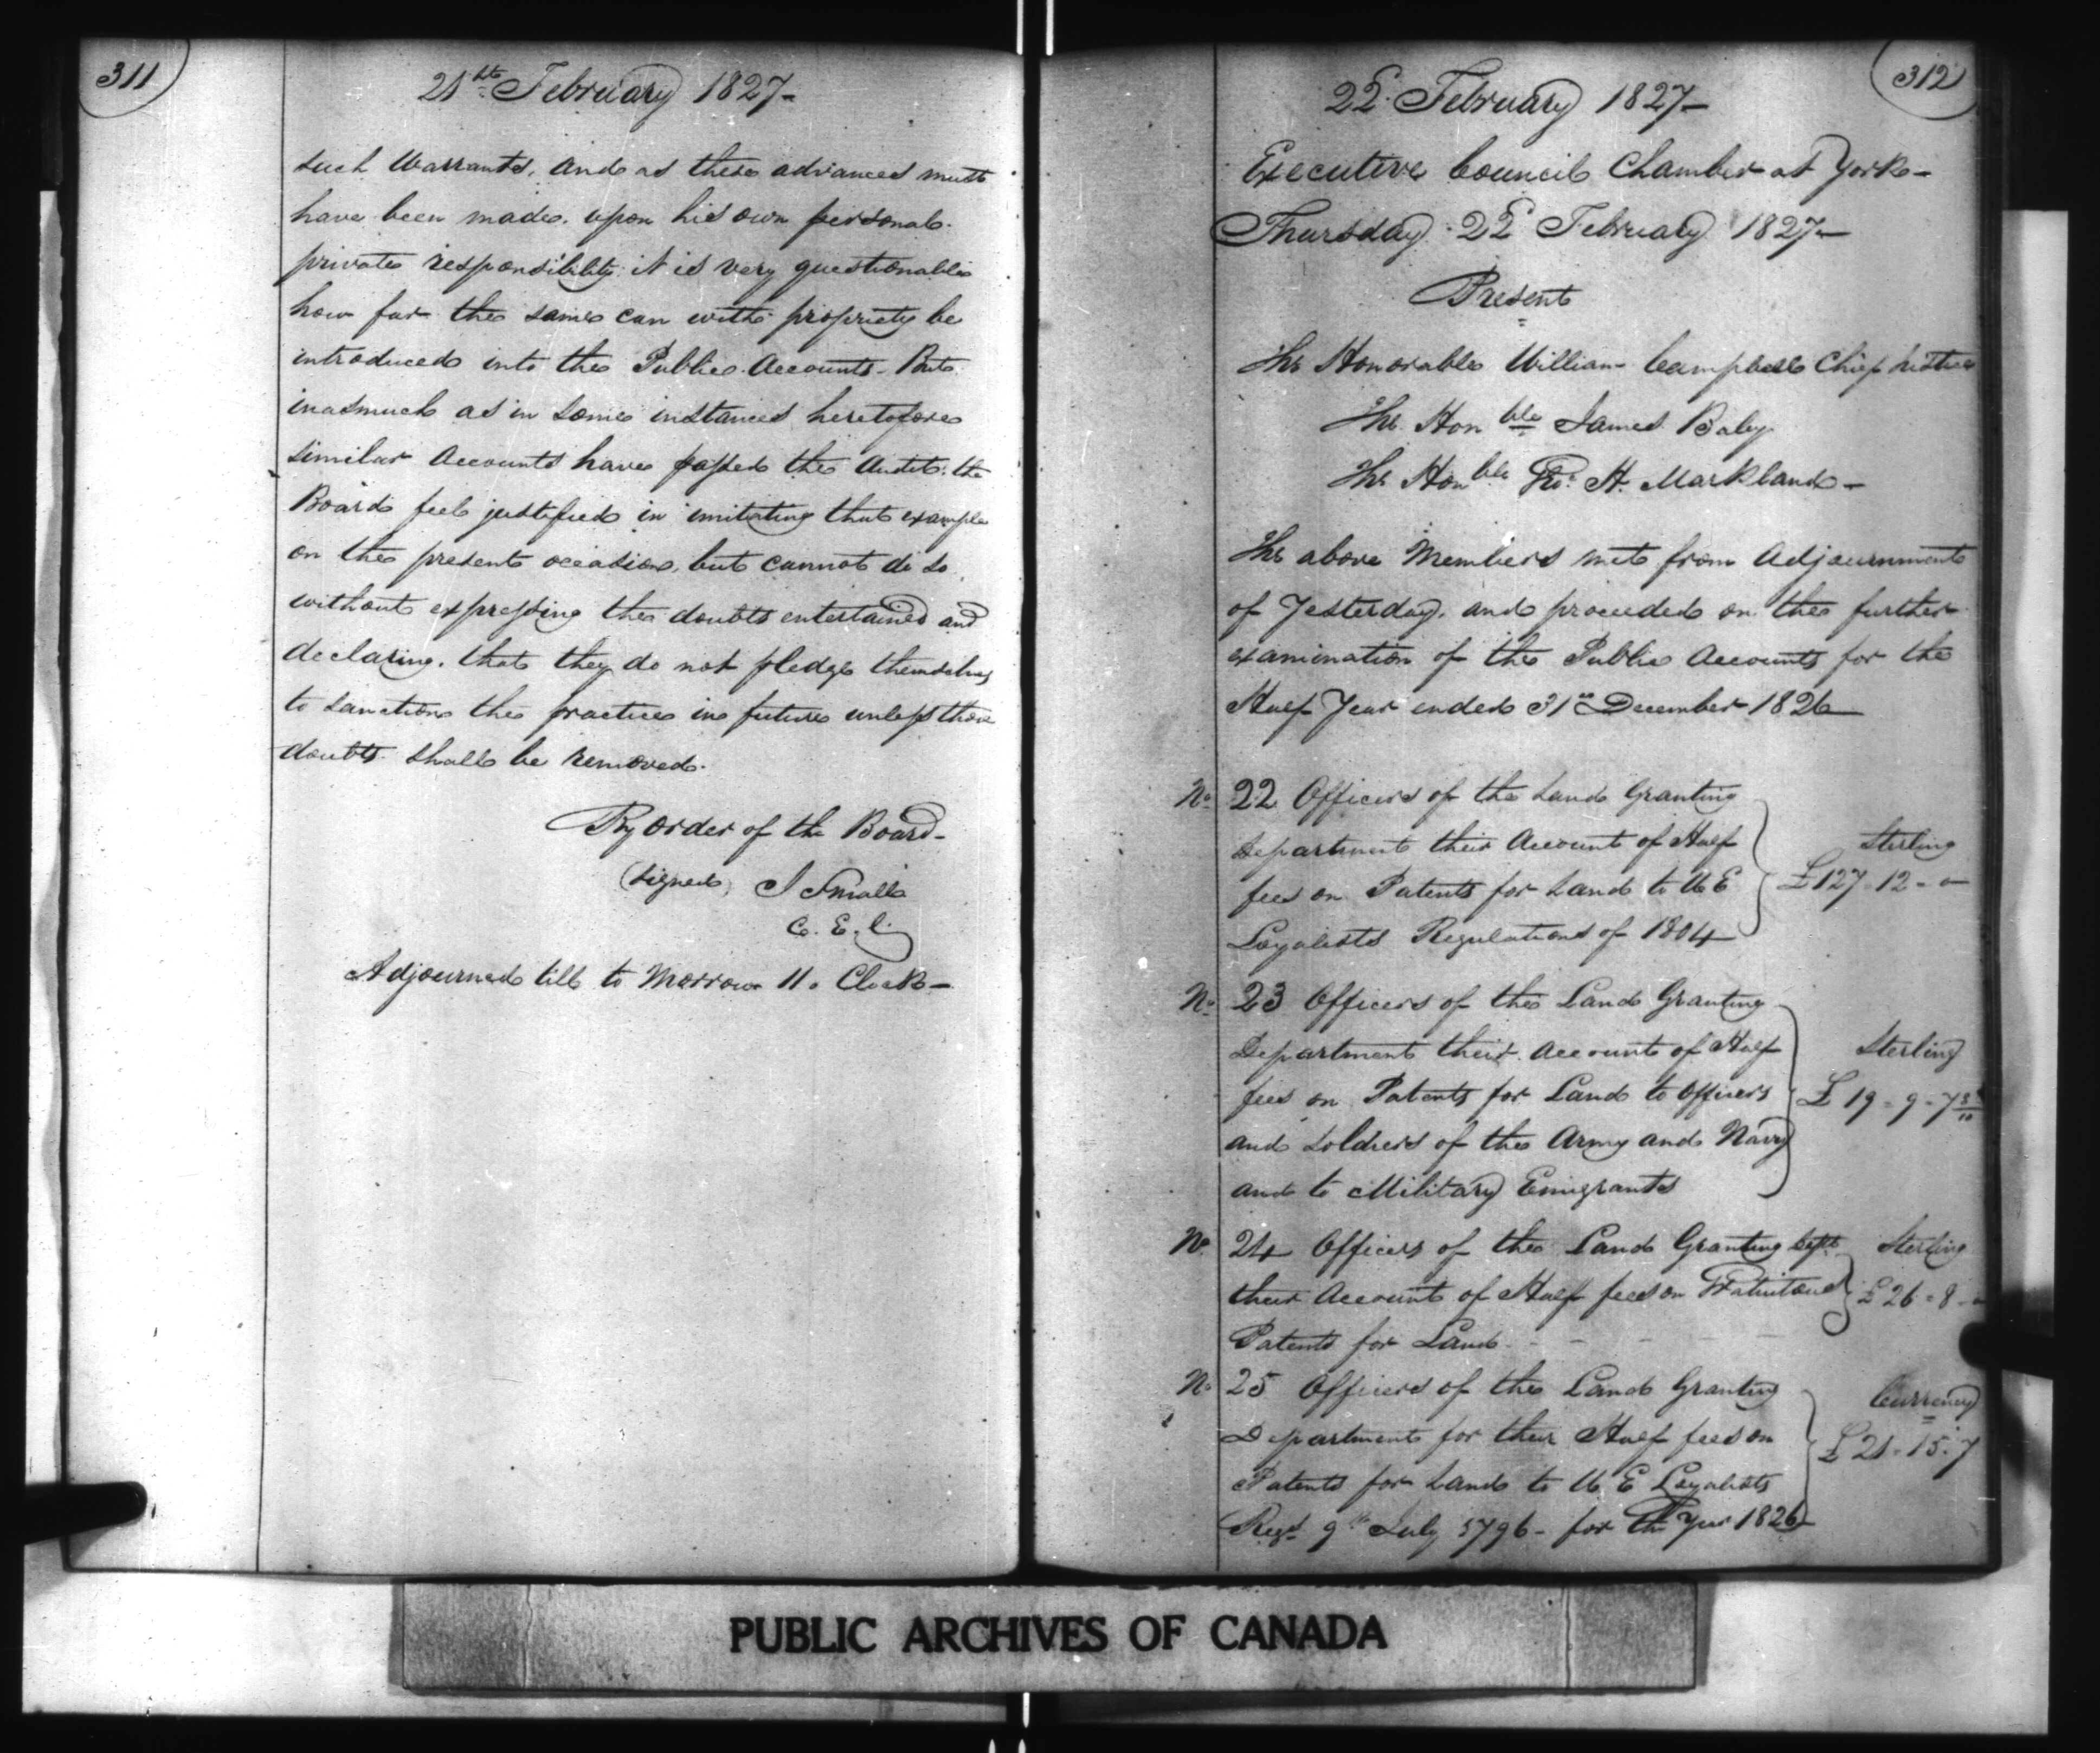 311
21st February 1827-
such Warrants, and as these advances must
have been made upon his own personal
private responsibility it is very questionable
how far the same can with propriety be
introduced into the Public Accounts - But
inasmuch as in some instances heretofore
similar Accounts have passed the Audit, the
Board feel justified in imitating that example
on the present occasion, but cannot do so
without expressing the doubts entertained and
declaring, that they do not pledge themselves
to sanction the practice in future unless those
doubts shall be removed.
By order of the Board-
(signed) J Small
C. E. C.
Adjourned till to Morrow 11 o Clock-
312
22d February 1827-
Executive Council Chamber at York-
Thursday 22d February 1827-
Present
The Honorable William Campbell Chief Justice
The Honble James Baby
The Honble Geo: H. Markland-
The above Members met from Adjournment
of Yesterday, and proceeded on the further
examination of the Public Accounts for the
Half Year ended 31st December 1826
No 22 Officers of the Land Granting
Department their Account of Half
fees on Patents for Land to U E
Loyalists Regulations of 1804
Sterling
£127-12-0
No 23 Officers of the Land Granting
Department their Account of Half
fees on Patents for Land to Officers
and Soldiers of the Army and Navy
and to Military Emigrants
Sterling
£19-9-7
No 24 Officers of the Land Granting Dept
their Account of Half fees on Gratuitous
Patents for Land
Sterling
£26-8-0
No 25 Officers of the Land Granting
Department for their Half fees on
Patents for Land to U E Loyalists
Regs 9th July 1796- for the Year 1826
Currency
£21-15-7
PUBLIC ARCHIVES OF CANADA